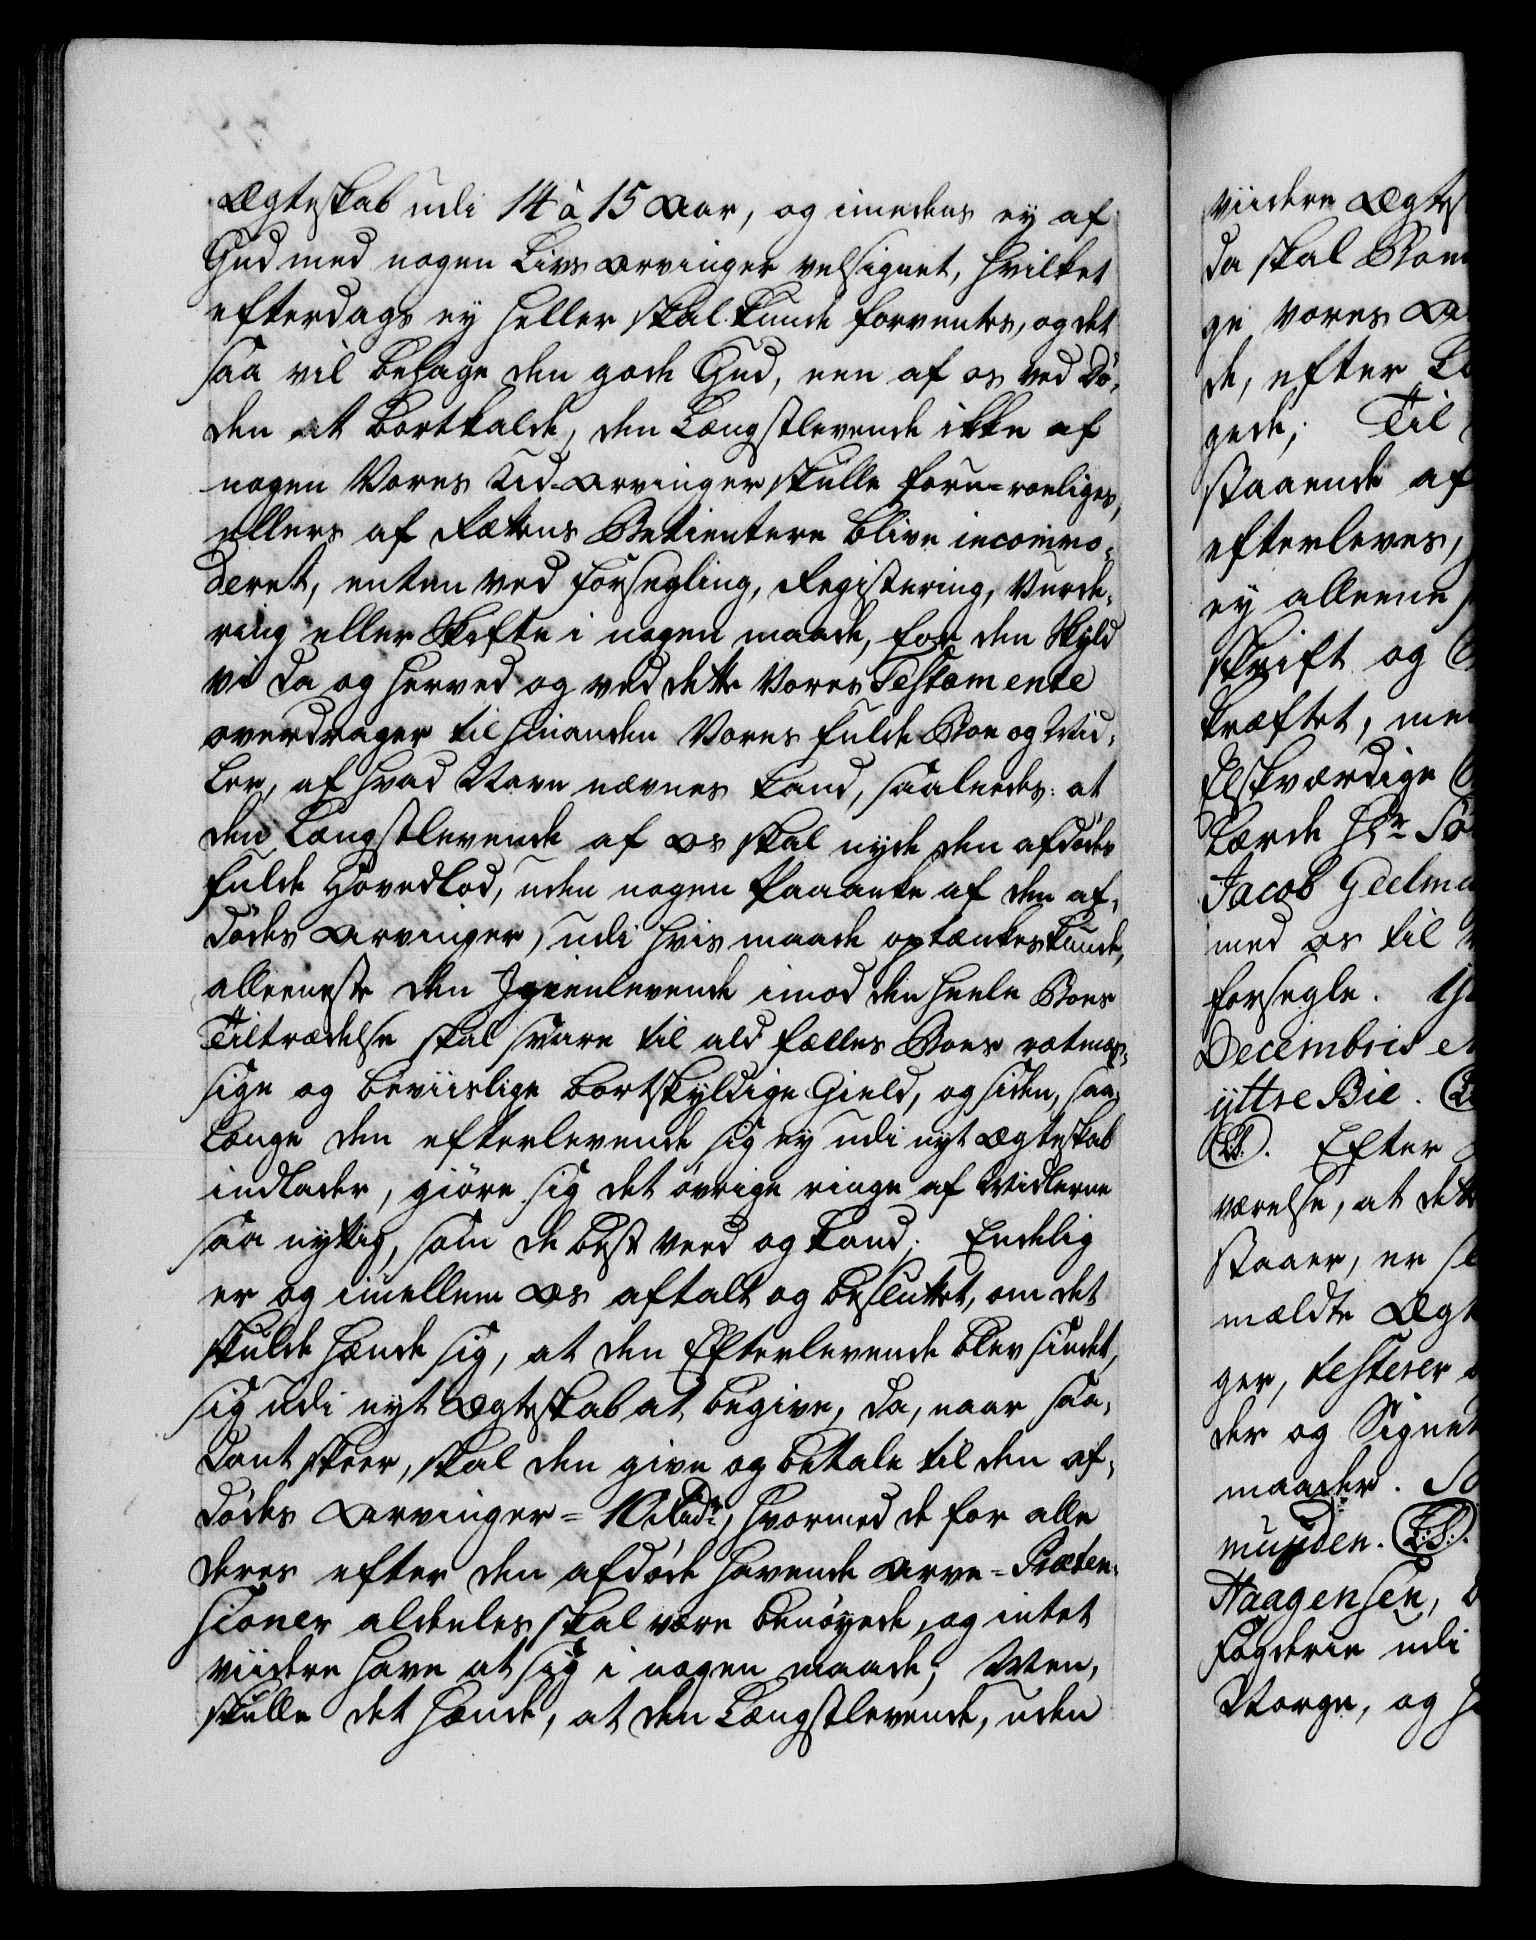 Ægteskab udi 14 à 15 Aar, og imedens ey af
Gud med nogen Livs Arvinger velsignet, hvilket
efterdags ey heller skal kunde forventes, og det
saa vil behage den gode Gud, een af os ved Dö,
den at bortkalde, den Længstlevende ikke af
nogen Vores Ud-Arvinger skulle foru-roeliges,
ellers af Rettens Betientere blive incommo,
deret, enten ved forsegling, Registering, Vurde,
ring eller Skifte i nogen maade, for den Skyld
vi da og herved og ved dette Vores Testamente
overdrager til hinanden Vores fulde Boe og Mid,
ler, af hvad Navn nævnes kand, saaledes: at
den Længstlevende af os skal nyde den afdödes
fulde Hovedlod, uden nogen Paaanke af den af,
dödes Arvinger, udi hvis maade optænkes kunde,
alleeneste den Igienlevende imod den heele Boes
Tiltrædelse skal svare til ald fælles Boes rætmæs,
sige og beviislige bortskyldige Gield, og siden, saa,
længe den efterlevende sig ey udi nyt Ægteskab
indlader, giöre sig det övrige ringe af Midlerne
saa nyttig, som de best veed og kand. Endelig
er og imellem Os aftalt og besluttet, om det
skulde hænde sig, at den Efterlevende blev sindet,
sig udi nyt Ægteskab at begive, da, naar saa,
dant skeer, skal den give og betale til den af,
dödes Arvinger = 10 Rixdr, hvormed de for alle
deres efter den afdöde havende Arve-Præten,
sioner aldeeles skal være benöyede, og intet
viidere have at sig i nogen maade; Men,
skulle det hænde, at den Længstlevende, uden
viidere Ægtes
da skal Boe
ge vores A
de, efter L
gede; Til
staaende af
efterleves,
ey alleene
skrift og
kræftet, me
Elskværdige
Lærde Hr Sö
Jacob Geelmu
med os til
forsegle.
Decembris
ÿttre Bie.
LS. Efter
værelse, at dette
staaer, er
mældte Ægt
ger, testerer
der og Signet
maader. So
muyden. LS.
Haagensen,
Fogderie udi
Norge, og